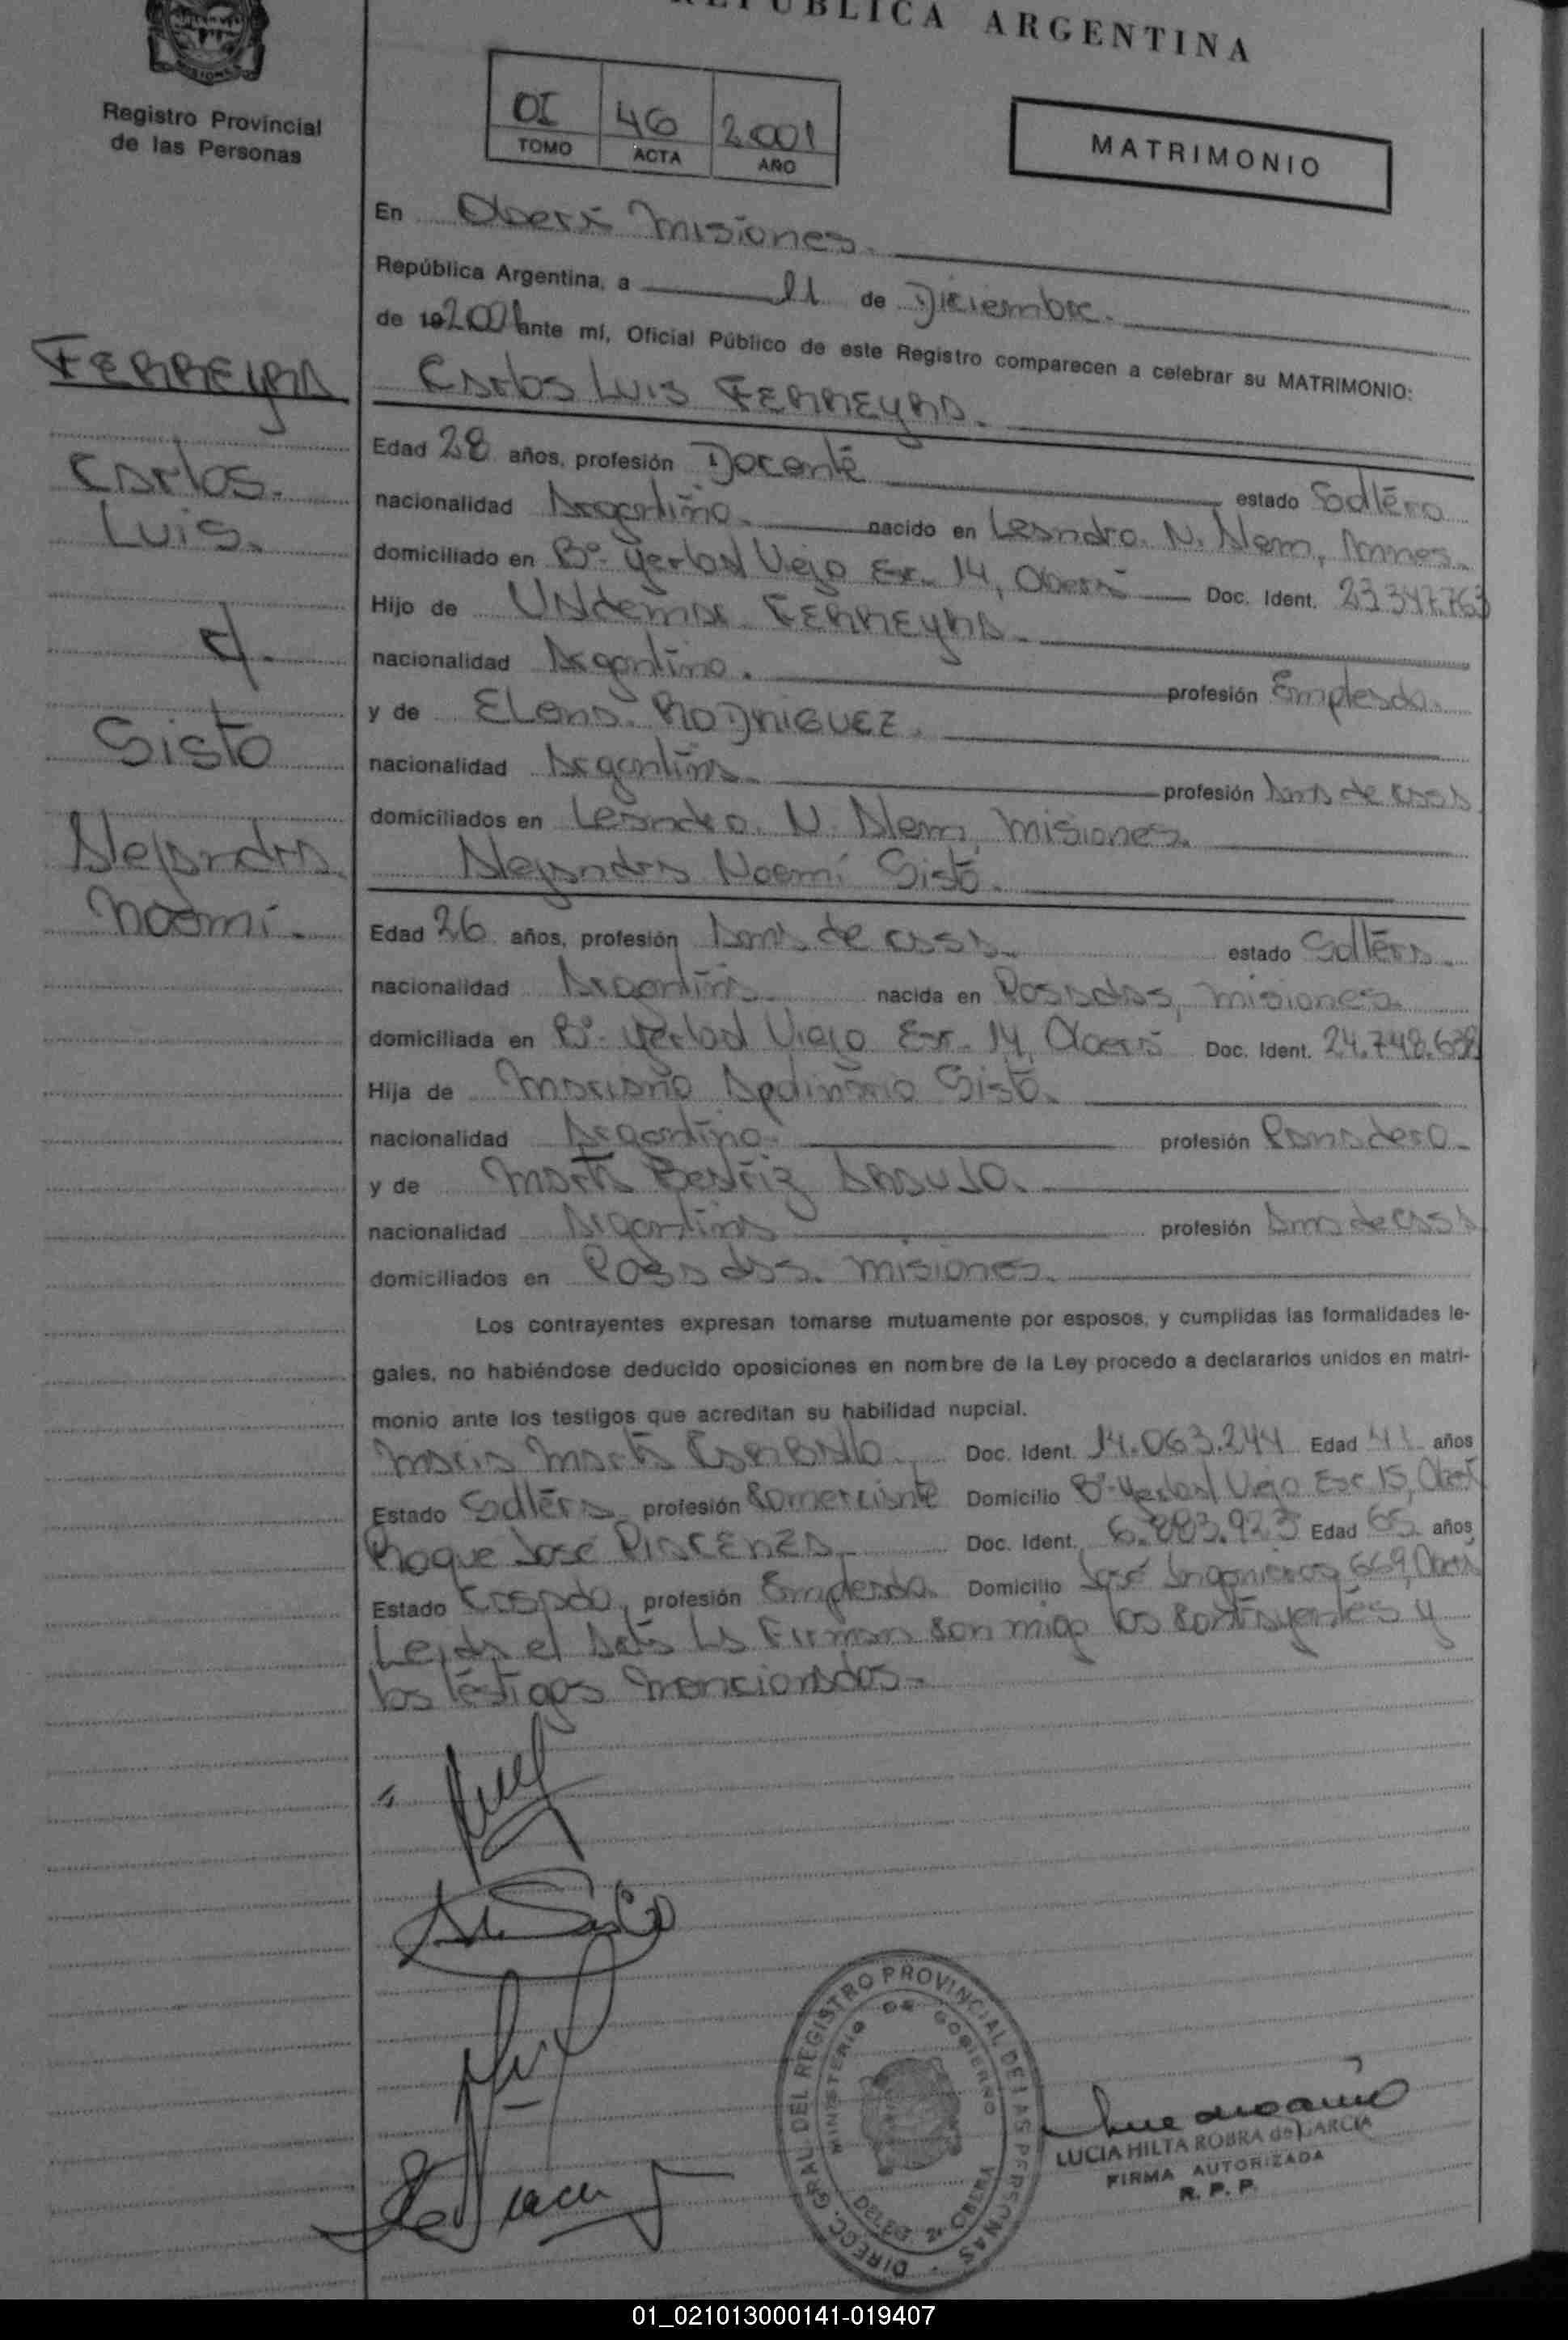 REPUBLICA ARGENTINA
MISIONES
Registro Provincial
de las Personas
01 46 2.001
TOMO ACTA AÑO
MATRIMONIO
En Oberá Misiones.
República Argentina, a 21 de Diciembre.
de 19 2001 ante mí, Oficial Público de este Registro comparecen a celebrar su MATRIMONIO:
FERREYRA
Carlos.
Luis.
c/.
Sisto
Alejandra
Noemí.
Carlos Luis FERREYRA.
Edad 28 años, profesión Docente estado Soltero
nacionalidad Argentino. nacido en Leandro. N. Alem, Mnes.
domiciliado en Bº. Yerbal Viejo Esc. 14, Oberá Doc. Ident. 23.347.763
Hijo de Valdemar FERREYRA.
nacionalidad Argentino. profesión Empleado.
y de ELena. RODRIGUEZ.
nacionalidad Argentina. profesión Ama de casa
domiciliados en Leandro. N. Alem, Misiones.
Alejandra Noemí Sisto.
Edad 26 años, profesión Ama de casa. estado Soltera.
nacionalidad Argentina. nacida en Posadas, Misiones.
domiciliada en Bº. Yerbal Viejo Esc. 14, Oberá Doc. Ident. 24.748.638
Hija de Marciano Apolinario Sisto.
nacionalidad Argentino. profesión Panadero.
y de Marta Beatriz ARAUJO.
nacionalidad Argentina profesión Ama de casa
domiciliados en Posadas. Misiones.
Los contrayentes expresan tomarse mutuamente por esposos, y cumplidas las formalidades le-
gales, no habiéndose deducido oposiciones en nombre de la Ley procedo a declararlos unidos en matri-
monio ante los testigos que acreditan su habilidad nupcial.
María Marta Doc. Ident. 14.063.244 Edad 41 años
Estado Soltera profesión Comerciante Domicilio Bº. Yerbal Viejo Esc. 15, Oberá
Roque José PIACENZA. Doc. Ident. 6.883.923 Edad 65 años
Estado Casado, profesión Empleado. Domicilio José Ingenieros 669, Oberá
Leida el Acta La Firman conmigo los contrayentes y
los testigos mencionados.
DIRECC. GRAL. DEL REGISTRO PROVINCIAL DE LAS PERSONAS
MINISTERIO DE GOBIERNO
OBERA
LUCIA HILTA ROBRA de GARCIA
FIRMA AUTORIZADA
R. P. P.
01_021013000141-019407